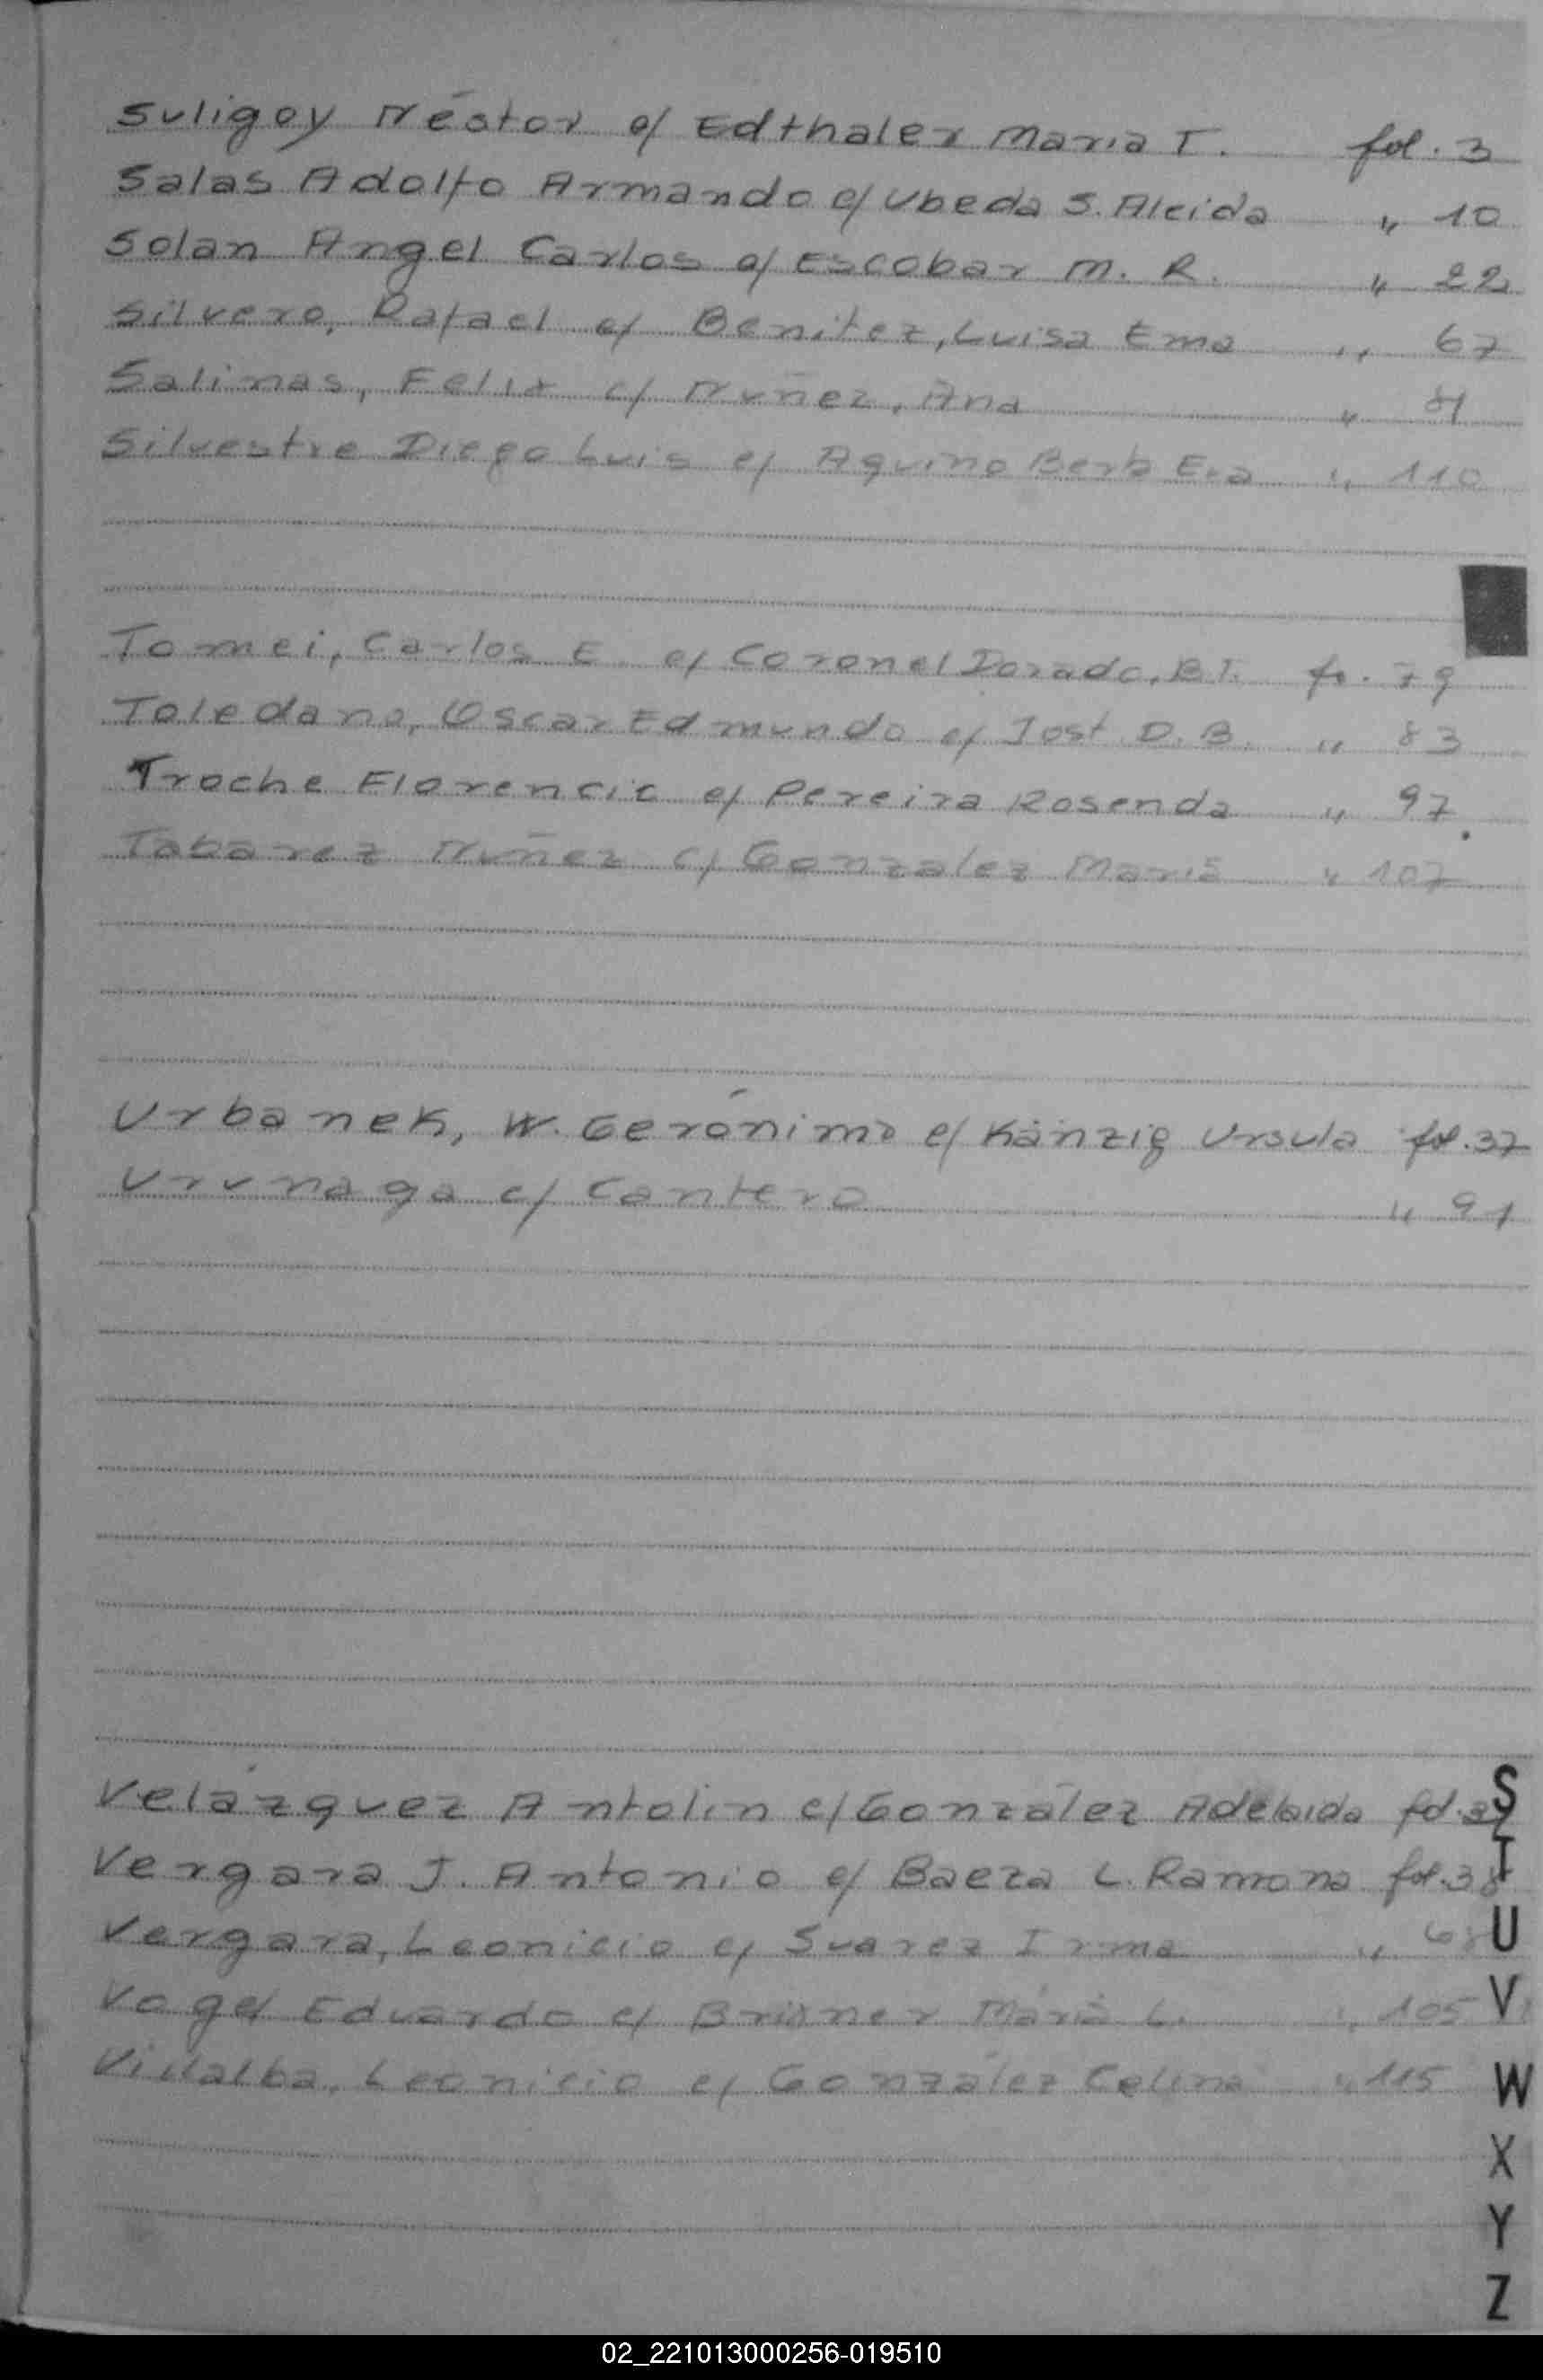 Suligoy Néstor c/ Edthaler Maria T. fol. 3
Salas Adolfo Armando c/ Ubeda S. Aleida " 10
Solan Angel Carlos c/ Escobar M. R. " 22
Silvero, Rafael c/ Benitez, Luisa Ema " 67
Salinas, Felix c/ Nuñez, Ana "
Silvestre Diego Luis c/ Aquino Berta " 110
Tomei, Carlos E c/ Coronel Dorado, B.T. fo. 79
Toledano, Oscar Edmundo c/ Jost D. B. " 83
Troche Florencio c/ Pereira Rosenda " 97
Tabarez Nuñez c/ Gonzalez Maria " 107
Urbanek, W. Gerónimo c/ Känzig Ursula fol. 37
Urunaga c/ Cantero " 91
Velázquez Antolin c/ González Adelaida fol.
Vergara J. Antonio c/ Baeza L. Ramona fol. 38
Vergara, Leonicio c/ Suarez Irma " 68
Vogel Eduardo c/ Brixner Maria L. " 105
Villalba, Leonicio c/ González Celina " 115
S
T
U
V
W
X
Y
Z
02_221013000256-019510